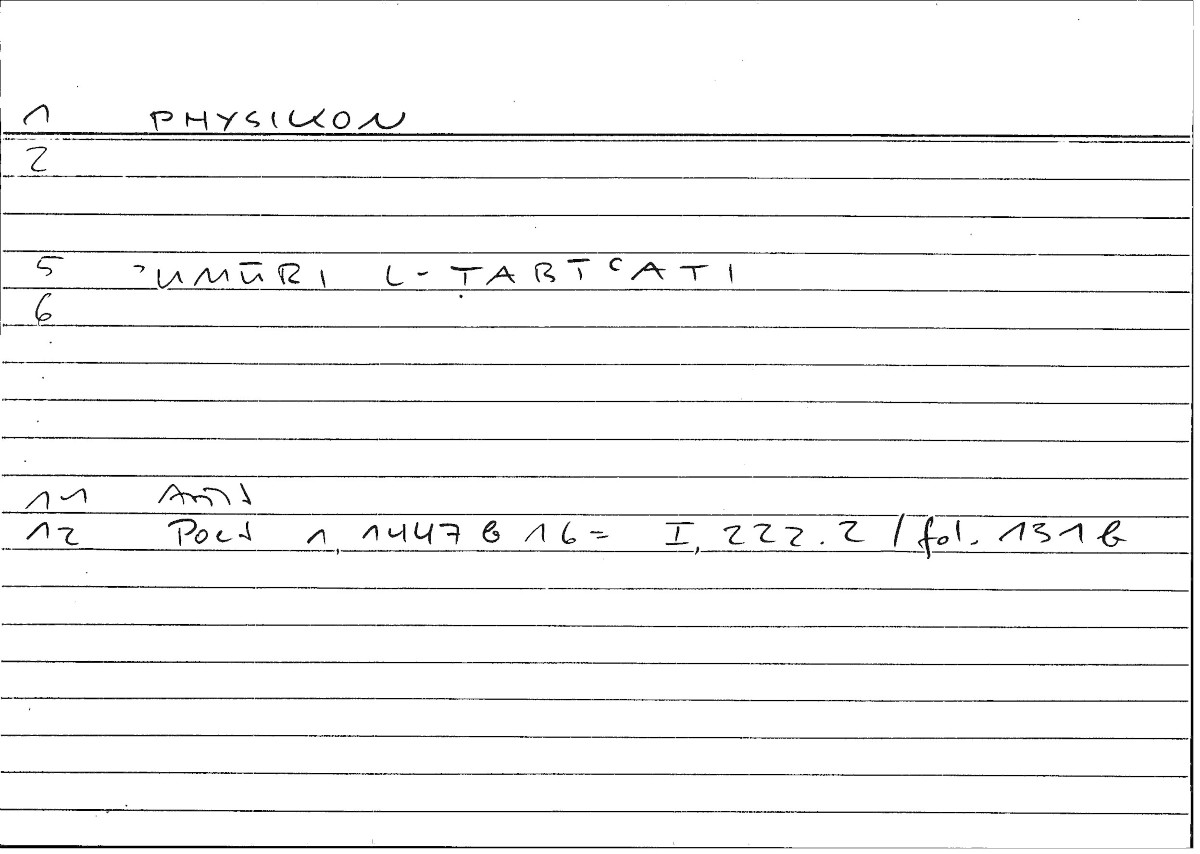 1 PHYSIKON
2
5 ʾUMŪRI L-ṬABĪʿATI
6
11
12 Poet 1, 1447 b 16 = I, 222.2 / fol. 131 b